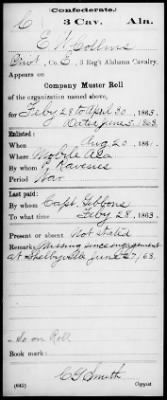 (Confederate.)
C 3 Cav. Ala.
E W Collins
Pivt, Co. E, 3 Reg't Alabama Cavalry.
Appears on
Company Muster Roll
of the organization named above,
for Feby 28 to April 30, 1863.
Dated June 5, 1863.
Enlisted:
When Aug 20, 186 .
Where Mobile Ala
By whom
Period War
Last paid:
By whom Capt. Gibbons
To what time Feby 28, 1863.
Present or absent Not Stated
Remarks: Missing since engagement
at Shelbyville June 27, 63.
So on Roll
Book mark:
CG Smith
(642) Copyist.